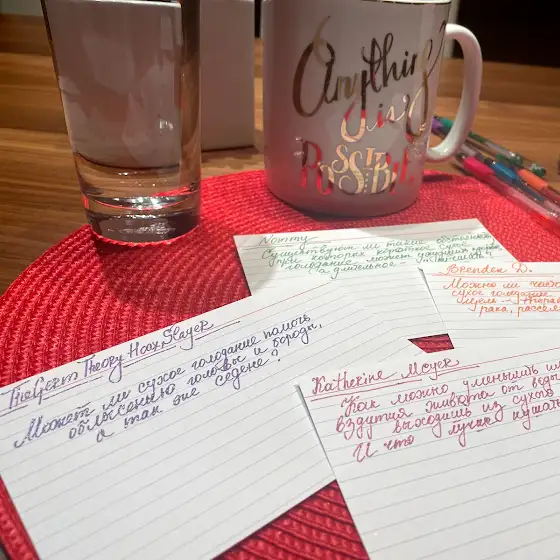 Anything
is
Possible
Nommy
Существуют ли такие обстоятельст
при которых короткое сухое
голодание может ухудшить здоровье,
(а длительное - улучшить)?
Brenden D.
Можно ли
сухое голодание
цель -
рака, рассе
The Germ Theory Hoax Slayer
Может ли сухое голодание помочь
облысению головы и бороды,
а так же седене?
Katherine Meyer
Как можно уменьшить ши
вздутия живота от воды
выходишь из сухого
И что лучше кушать